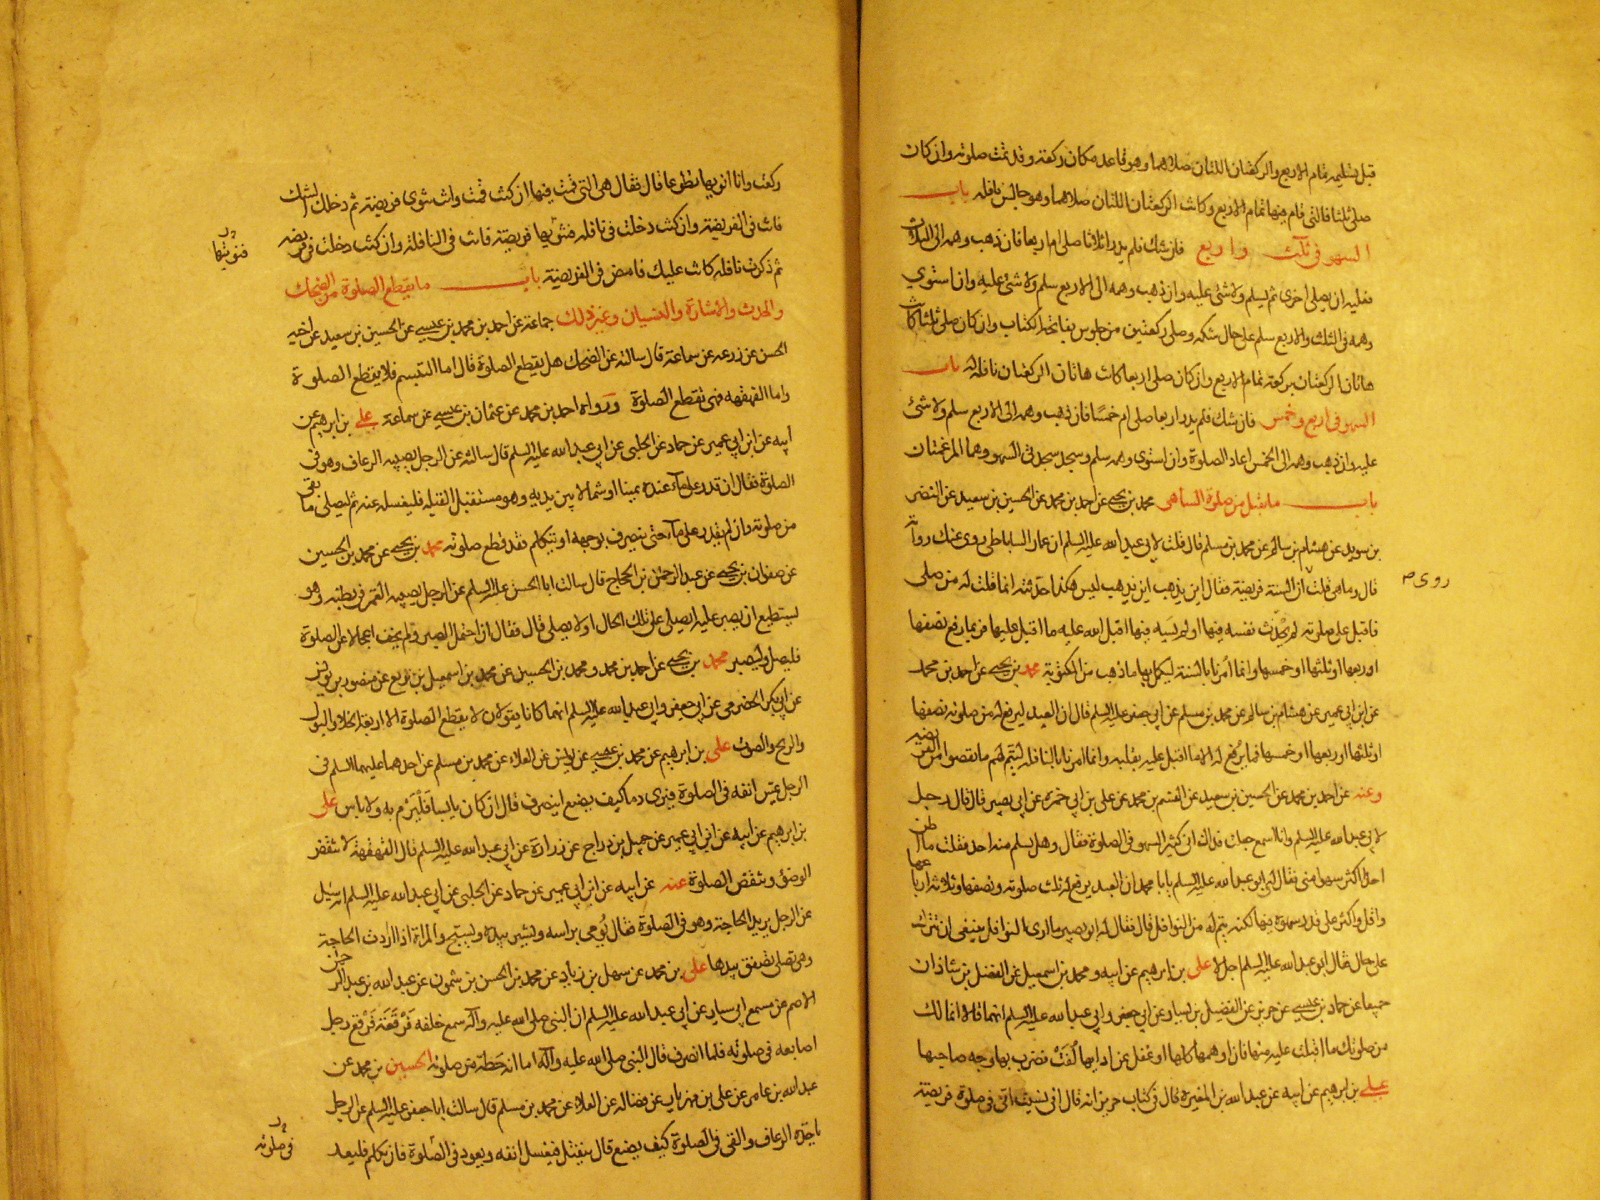 قبل تسليمه تمام الاربع والركعتان اللتان صلاهما وهو قاعد مكان ركعة وقد تمت صلوته وان كان
صلى ثلثا فالتى قام فيها تمام الاربع وكانت الركعتان اللتان صلاهما وهو جالس نافله باب
السهو فى ثلث واربع فان شك فلم يدر اثلاثا صلى ام اربعا فان ذهب وهمه الى الثلاث
فعليه ان يصلى اخرى ثم يسلم ولا شئ عليه وان ذهب وهمه الى الاربع سلم ولا شئ عليه وان استوى
وهمه فى الثلث والاربع سلم على حال شكه وصلى ركعتين من جلوس بفاتحة الكتاب وان كان صلى ثلثا كانت
هاتان الركعتان بركعة تمام الاربع وان كان صلى اربعا كانت هاتان الركعتان نافلة له باب
السهو فى اربع وخمس فان شك فلم يدر اربعا صلى ام خمسا فان ذهب وهمه الى الاربع سلم ولا شئ
عليه وان ذهب وهمه الى الخمس اعاد الصلوة وان استوى وهمه سلم وسجد سجدتى السهو وهما المرغمتان
باب ما يقبل من صلوة الساهى محمد بن يحيى عن احمد بن محمد عن الحسين بن سعيد عن النضر
بن سويد عن هشام بن سالم عن محمد بن مسلم قال قلت لابى عبد الله عليه السلم ان عمار الساباطى روى عنك رواية
قال وما هى قلت ان السنة فريضة فقال اين يذهب اين يذهب ليس هكذا حدثته انما قلت له من صلى
روى م
فاقبل على صلوته لم يحدث نفسه فيها او لم يسه فيها اقبل الله عليه ما اقبل عليها فربما رفع نصفها
او ربعها او ثلثها او خمسها وانما امرنا بالسنة ليكمل بها ما ذهب من المكتوبة محمد بن يحيى عن احمد بن محمد
عن ابن ابى عمير عن هشام بن سالم عن محمد بن مسلم عن ابى جعفر عليه السلم قال ان العبد ليرفع له من صلوته نصفها
او ثلثها او ربعها او خمسها فما يرفع له الا ما اقبل عليه بقلبه وانما امرنا بالنافلة ليتم لهم ما نقصوا من الفريضة
وعنه عن احمد بن محمد عن الحسين بن سعيد عن القسم بن محمد عن على بن ابى حمزة عن ابى بصير قال قال رجل
لابى عبد الله عليه السلم وانا اسمع جعلت فداك انى كثير السهو فى الصلوة فقال وهل يسلم منه احد فقلت ما اظن
احدا اكثر سهوا منى فقال له ابو عبد الله عليه السلم يا با محمد ان العبد يرفع له ثلث صلوته ونصفها وثلاثة ارباعها
واقل واكثر على قدر سهوه فيها لكنه يتم له من النوافل قال فقال له ابو بصير ما ارى النوافل ينبغى ان تترك
على حال فقال ابو عبد الله عليه السلم اجل لا على بن ابراهيم عن ابيه ومحمد بن اسمعيل عن الفضل بن شاذان
جميعا عن حماد بن عيسى عن حريز عن الفضيل بن يسار عن ابى جعفر وابى عبد الله عليه السلم انهما قالا انما لك
من صلوتك ما اقبلت عليه منها فان اوهمها كلها او غفل عن ادابها لفت فضرب بها وجه صاحبها
على بن ابراهيم عن ابيه عن عبد الله بن المغيرة قال فى كتاب حريز انه قال انى نسيت انى فى صلوة فريضة
ركعت وانا انويها تطوعا قال فقال هى التى قمت فيها ان كنت قمت وانت تنوى فريضة ثم دخلك الشك
فانت فى الفريضة وان كنت دخلت فى نافله فنويتها فريضة فانت فى النافلة وان كنت دخلت فى فريضة
فنويتها
ثم ذكرت نافله كانت عليك فامض فى الفريضة باب ما يقطع الصلوة من الضحك
والحدث والاشارة والنسيان وغير ذلك جماعة عن احمد بن محمد بن عيسى عن الحسين بن سعيد عن اخيه
الحسن عن زرعه عن سماعة قال سالته عن الضحك هل يقطع الصلوة قال اما التبسم فلا يقطع الصلوة
واما القهقهه فهى تقطع الصلوة ورواه احمد بن محمد عن عثمان بن عيسى عن سماعة على بن ابرهيم عن
ابيه عن ابن ابى عمير عن حماد عن الحلبى عن ابى عبد الله عليه السلم قال سالته عن الرجل يصيبه الرعاف وهو فى
الصلوة فقال ان قدر على ماء عنده يمينا او شمالا بين يديه وهو مستقبل القبله فليغسله عنه ثم ليصلى ما بقى
من صلوته وان لم يقدر على ماء حتى ينصرف بوجهه او يتكلم فقد قطع صلوته محمد بن يحيى عن محمد بن الحسين
عن صفوان بن يحيى عن عبد الرحمن بن الحجاج قال سالت ابا الحسن عليه السلم عن الرجل يصيبه الغمز فى بطنه وهو
يستطيع ان يصبر عليه ايصلى على تلك الحال او لا يصلى قال فقال ان احتمل الصبر ولم يخف اعجالا عن الصلوة
فليصل وليصبر محمد بن يحيى عن احمد بن محمد ومحمد بن الحسين عن محمد بن اسمعيل بن بزيع عن منصور بن يونس
عن ابى بكر الحضرمى عن ابى جعفر وابى عبد الله عليه السلم انهما كانا يقولان لا يقطع الصلوة الا اربعة الخلاء والبول
والريح والصوت على بن ابرهيم عن محمد بن عيسى عن يونس عن العلاء عن محمد بن مسلم عن احدهما عليهما السلم فى
الرجل يمس انفه فى الصلوة فيرى دما كيف يصنع اينصرف قال ان كان يابسا فليرم به ولا باس على
بن ابرهيم عن ابيه عن ابن ابى عمير عن جميل بن دراج عن زرارة عن ابى عبد الله عليه السلم قال القهقهة لا تنقض
الوضوء وتنقض الصلوة عنه عن ابيه عن ابن ابى عمير عن حماد عن الحلبى عن ابى عبد الله عليه السلم انه سئل
عن الرجل يريد الحاجة وهو فى الصلوة فقال يومى براسه ويشير بيده ويسبح والمراة اذا ارادت الحاجة
وهى تصلى تصفق بيدها على بن محمد عن سهل بن زياد عن محمد بن الحسن بن شمون عن عبد الله بن عبد الرحمن
الاصم عن مسمع ابى سيار عن ابى عبد الله عليه السلم ان النبى صلى الله عليه وآله سمع خلفه فرقعة فرقع رجل
اصابعه فى صلوته فلما انصرف قال النبى صلى الله عليه وآله اما انه حظه من صلوته الحسين بن محمد عن
عبد الله بن عامر عن على بن مهزيار عن فضاله عن العلاء عن محمد بن مسلم قال سالت ابا جعفر عليه السلم عن الرجل
ياخذه الرعاف والقى فى الصلوة كيف يصنع قال ينفتل فيغسل انفه ويعود فى الصلوة فان تكلم فليعد
فى صلوته